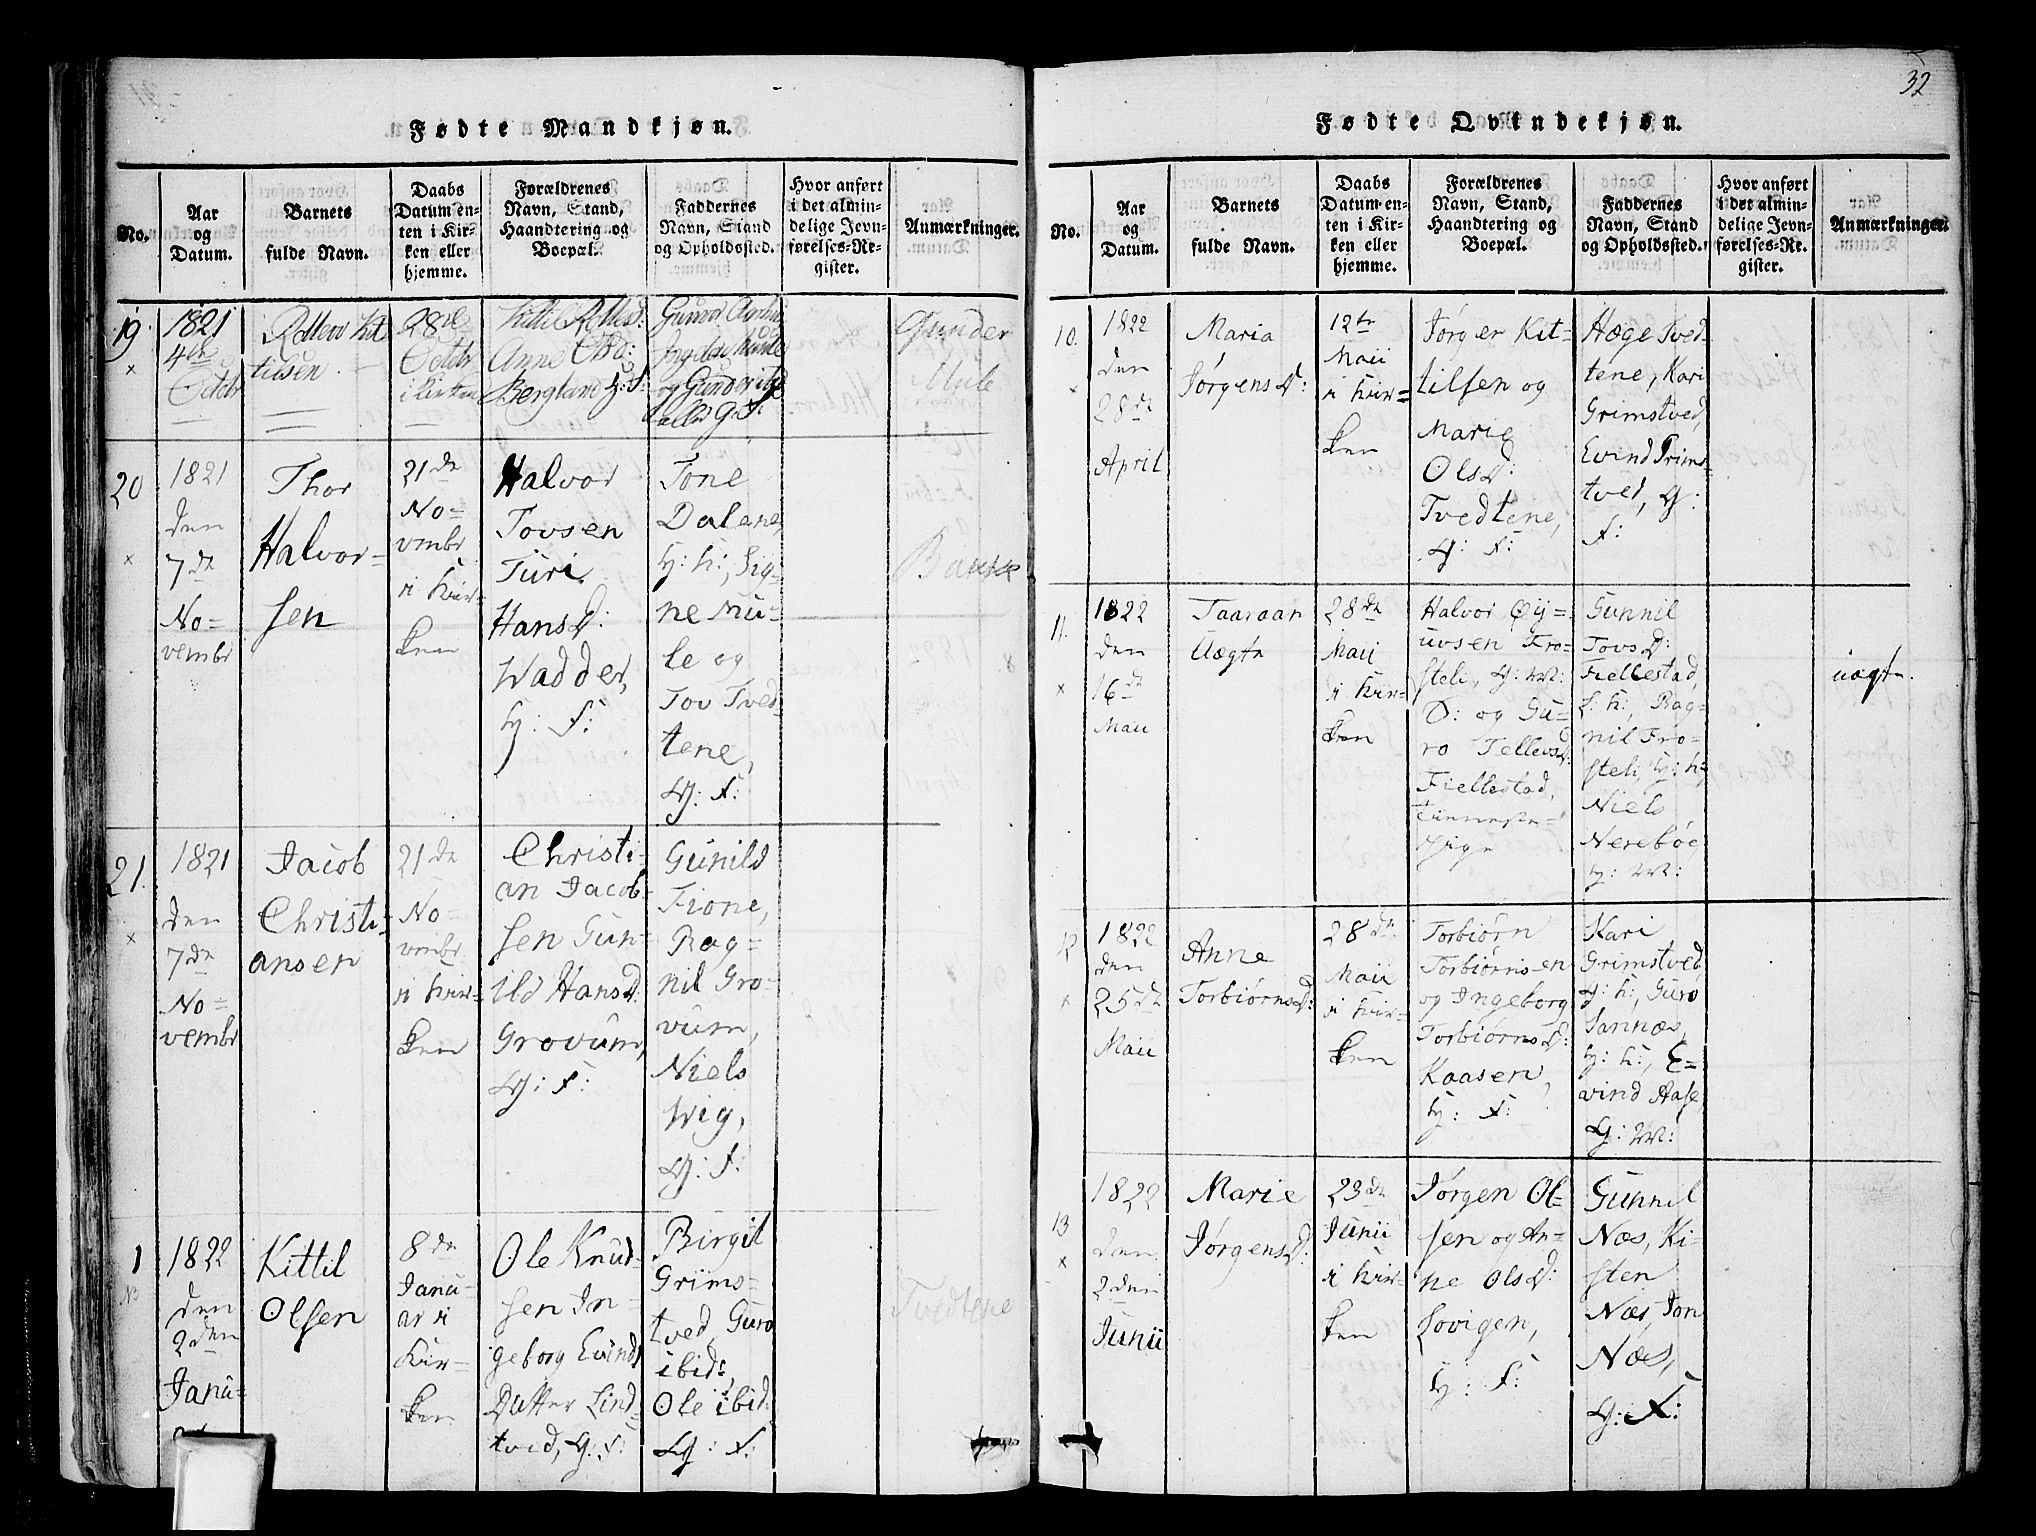 32
Fødte Mandkjøn.
No.
Aar
og
Datum.
Barnets
fulde Navn.
Daabs
Datum en-
ten i Kir-
ken eller
hjemme.
Forældrenes
Navn, Stand,
Haandtering og
Boepæl.
Faddernes
Navn, Stand
og Opholdssted.
Hvor anført
i det almin-
delige Jevn-
førelses-Re-
gister.
Anmærkninger.
19.
1821
4de
Octobr
Kit
tilsen
28de
Octobr
i Kirken
Anne
Bergland
Gunder
Mule
20
1821
den
7de
No=
vembr
Thor
Halvor=
sen
21de
No=
vembr
i Kir=
ken
Halvor
Tovsen
Turi
HansD:
Wadder,
G: F:
Tone
Dalene,
G: K:, Sig-
ne Mu-
le og
Tov Tved-
tene,
G: F:
Bakke
21.
1821
den
7de
No=
vembr
Jacob
Christi-
ansen
21de
No=
vembr
i Kir=
ken
Christi-
an Jacob-
sen Gun-
ild HansD:
Grovum,
G: F:
Gunild
Fione,
Rag=
nil Gro-
vum,
Niels
Wig,
G: F:
1
1822
den
2den
Janu=
Kittil
Olsen
8de
Janu=
ar i
Kir-
ken
Ole Knud-
sen In-
geborg Evinds
Datter Lind-
tved, G: F:
Birgit
Grims=
tved, Guro
ibid:,
Ole ibid:
G: F:
Tvedtene
Fødte Qvindekjøn.
No.
Aar
og
Datum.
Barnets
fulde Navn.
Daabs
Datum en-
ten i Kir-
ken eller
hjemme.
Forældrenes
Navn, Stand,
Haandtering og
Boepæl.
Faddernes
Navn, Stand
og Opholdssted.
Hvor anført
i det almin-
delige Jevn-
førelses-Re-
gister.
Anmærkninger.
10.
1822
den
28de
April
Maria
JørgensD:
12te
Maii
i Kir=
ken
Jørgen Kit=
tilsen og
Marie
OlsD:
Tvedtene,
G: F:
Hæge Tved-
tene, Kari
Grimstved,
Evind Grims=
tved, G:
F:
11.
1822
den
16de
Maii
Taaraan
Uægte
28de
Maii
i Kir=
ken
Halvor Øy=
uvsen Fro-
steli, G: M:
D: og Gu=
ro TellevsD:
Fiellestad,
Gunnil
TovsD:
Fiellestad,
G: K:, Rag=
nil Fro-
steli, G: K:
Niels
Nerebøe
G: M:
uægte.
12
1822
den
25de
Maii
Anne
TorbiørnsD:
28de
Maii
i Kir=
ken
Torbiørn
Torbiørnsen
og Ingeborg
TorbiørnsD:
Kaasen,
G: F:
Kari
Grimstved
G: K:, Guro
Sannæs,
G: K:, E=
vind Aase,
G: M:
13
1822
den
2den
Junii
Marie
JørgensD:
23de
Junii
i Kir=
ken
Jørgen Ol=
sen og An=
ne OlsD:
Lovigen,
G: F:
Gunnil
Næs, Ki-
sten
Næs, Jon
Næs,
G: F: